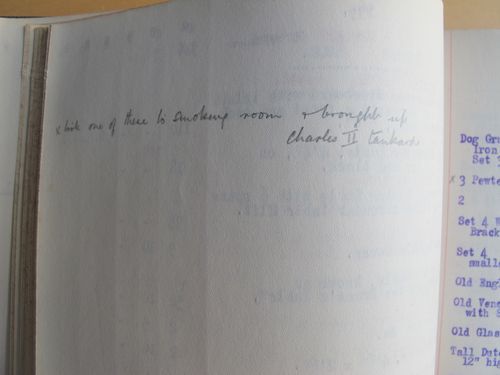 x took one of these to smoking room & brought up
Charles II tankards
Dog Gra
Iron
Set 3
x 3 Pewte
2
Set 4 W
Brack
Set 4
smalle
Old Engl
Old Vene
with S
Old Glas
Tall Dutc
12" hig